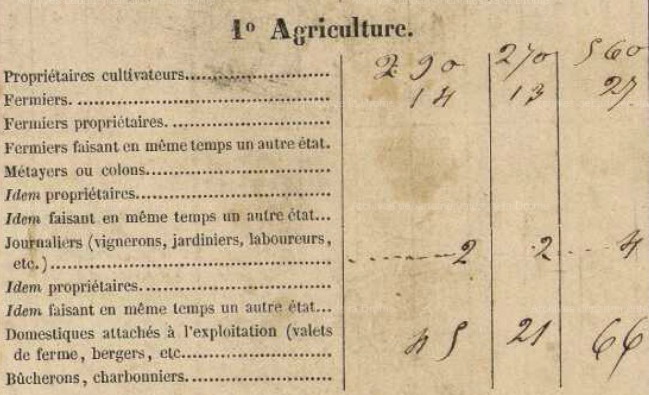 1º Agriculture.
Propriétaires cultivateurs............................ 290 270 560
Fermiers. ................................................ 14 13 27
Fermiers propriétaires. ............................
Fermiers faisant en même temps un autre état.
Métayers ou colons....................................
Idem propriétaires....................................
Idem faisant en même temps un autre état...
Journaliers (vignerons, jardiniers, laboureurs,
etc.)..................................................... 2 2 4
Idem propriétaires....................................
Idem faisant en même temps un autre état...
Domestiques attachés à l'exploitation (valets
de ferme, bergers, etc............................... 45 21 66
Bûcherons, charbonniers............................